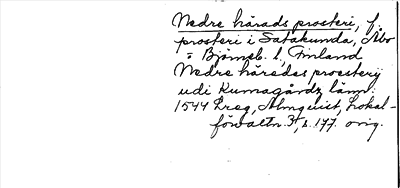 Nedre härads prosteri, f.
prosteri i Satakunda, Åbo
o Björneb. l, Finland
Nedre häredes proesterij
udi Kumagårdz länn:
1544 Dreg, Almquist, Lokal-
förvaltn. 3, s. 177. orig.